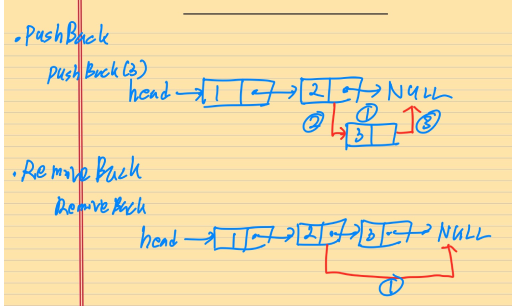 • PushBack
PushBack(3)
head → 1 → 2 → NULL
② ① ③
3
• Remove Back
Remove Back
head → 1 → 2 → 3 → NULL
①